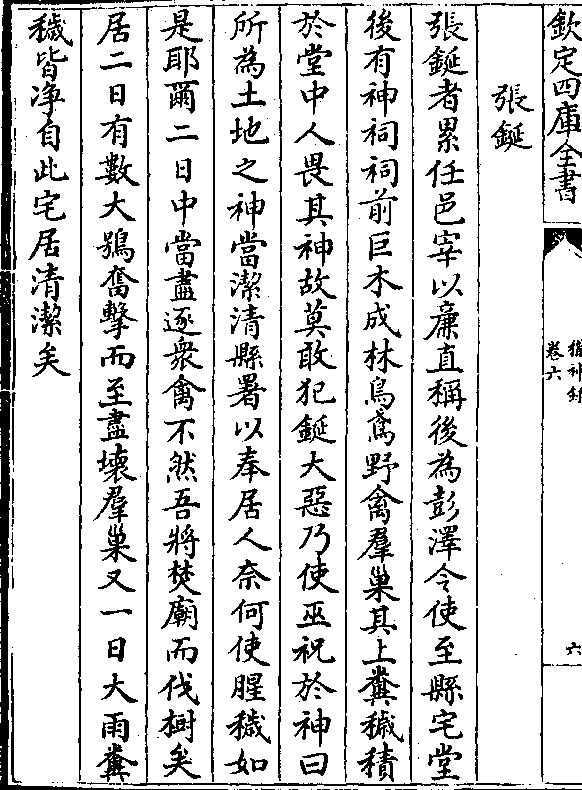 欽定四庫全書
稽神錄
卷六
六
張鋋
張鋋者累任邑宰以廉直稱後為彭澤令使至縣宅堂
後有神祠祠前巨木成林烏鳶野禽羣巢其上糞穢積
於堂中人畏其神故莫敢犯鋋大惡乃使巫祝於神曰
所為土地之神當潔清縣署以奉居人奈何使腥穢如
是耶爾二日中當盡逐衆禽不然吾將焚廟而伐樹矣
居二日有數大鶚奮擊而至盡壞羣巢又一日大雨糞
穢皆净自此宅居清潔矣